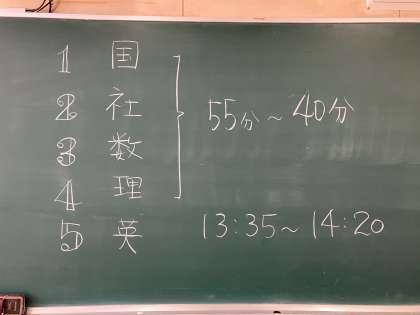 1 国
2 社
3 数
4 理
55分~40分
5 英
13:35~14:20